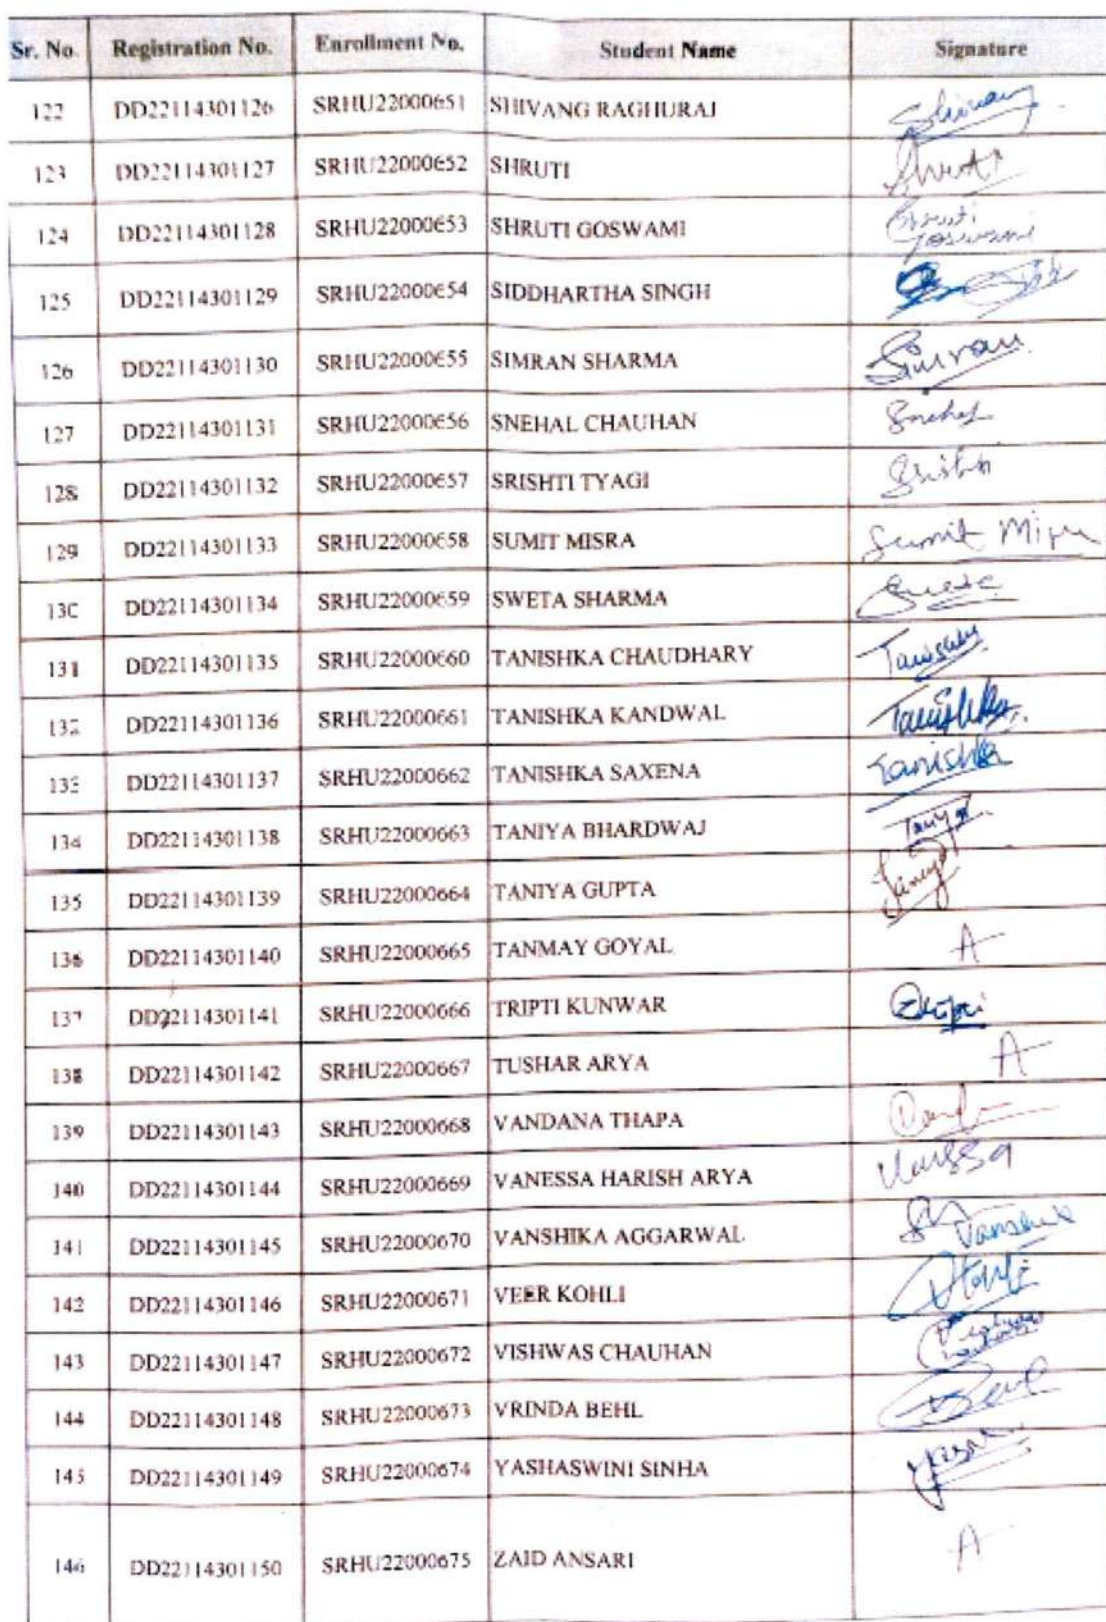 Sr. No. Registration No. Enrollment No. Student Name Signature
122 DD22114301126 SRHU22000651 SHIVANG RAGHURAJ Shivang
123 DD22114301127 SRHU22000652 SHRUTI Shruti
124 DD22114301128 SRHU22000653 SHRUTI GOSWAMI Shruti Goswami
125 DD22114301129 SRHU22000654 SIDDHARTHA SINGH
126 DD22114301130 SRHU22000655 SIMRAN SHARMA Simran
127 DD22114301131 SRHU22000656 SNEHAL CHAUHAN Snehal
128 DD22114301132 SRHU22000657 SRISHTI TYAGI Srishti
129 DD22114301133 SRHU22000658 SUMIT MISRA Sumit Misra
130 DD22114301134 SRHU22000659 SWETA SHARMA Sweta
131 DD22114301135 SRHU22000660 TANISHKA CHAUDHARY Tanishka
132 DD22114301136 SRHU22000661 TANISHKA KANDWAL Tanishka
133 DD22114301137 SRHU22000662 TANISHKA SAXENA Tanishka
134 DD22114301138 SRHU22000663 TANIYA BHARDWAJ Taniya
135 DD22114301139 SRHU22000664 TANIYA GUPTA Taniya
136 DD22114301140 SRHU22000665 TANMAY GOYAL A
137 DD22114301141 SRHU22000666 TRIPTI KUNWAR
138 DD22114301142 SRHU22000667 TUSHAR ARYA A
139 DD22114301143 SRHU22000668 VANDANA THAPA
140 DD22114301144 SRHU22000669 VANESSA HARISH ARYA Vanessa
141 DD22114301145 SRHU22000670 VANSHIKA AGGARWAL Vanshika
142 DD22114301146 SRHU22000671 VEER KOHLI
143 DD22114301147 SRHU22000672 VISHWAS CHAUHAN
144 DD22114301148 SRHU22000673 VRINDA BEHL
145 DD22114301149 SRHU22000674 YASHASWINI SINHA
146 DD22114301150 SRHU22000675 ZAID ANSARI A